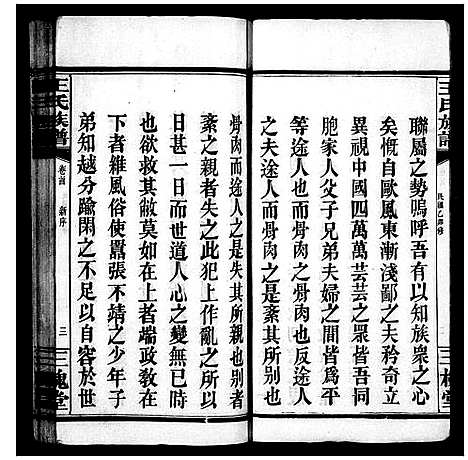 王氏族譜
聯屬之勢嗚呼吾有以知族衆之心
矣慨自歐風東漸淺鄙之夫矜奇立
異視中國四萬萬芸芸之眾皆吾同
胞家人父子兄弟夫婦之間皆爲平
等途人也而之骨肉也反途人
之夫途人而之骨肉而途人
三槐堂
骨肉而途人之是失其所親也别者
紊之親者失之此犯上作亂之所以
日甚一日而世道人心之變無已時
也欲救其敝莫如在上者端政敎在
下者維風俗使囂張不靖之少年子
弟知越分踰閑之不足以自容於世
王氏族譜
卷首
新序
三
三槐堂